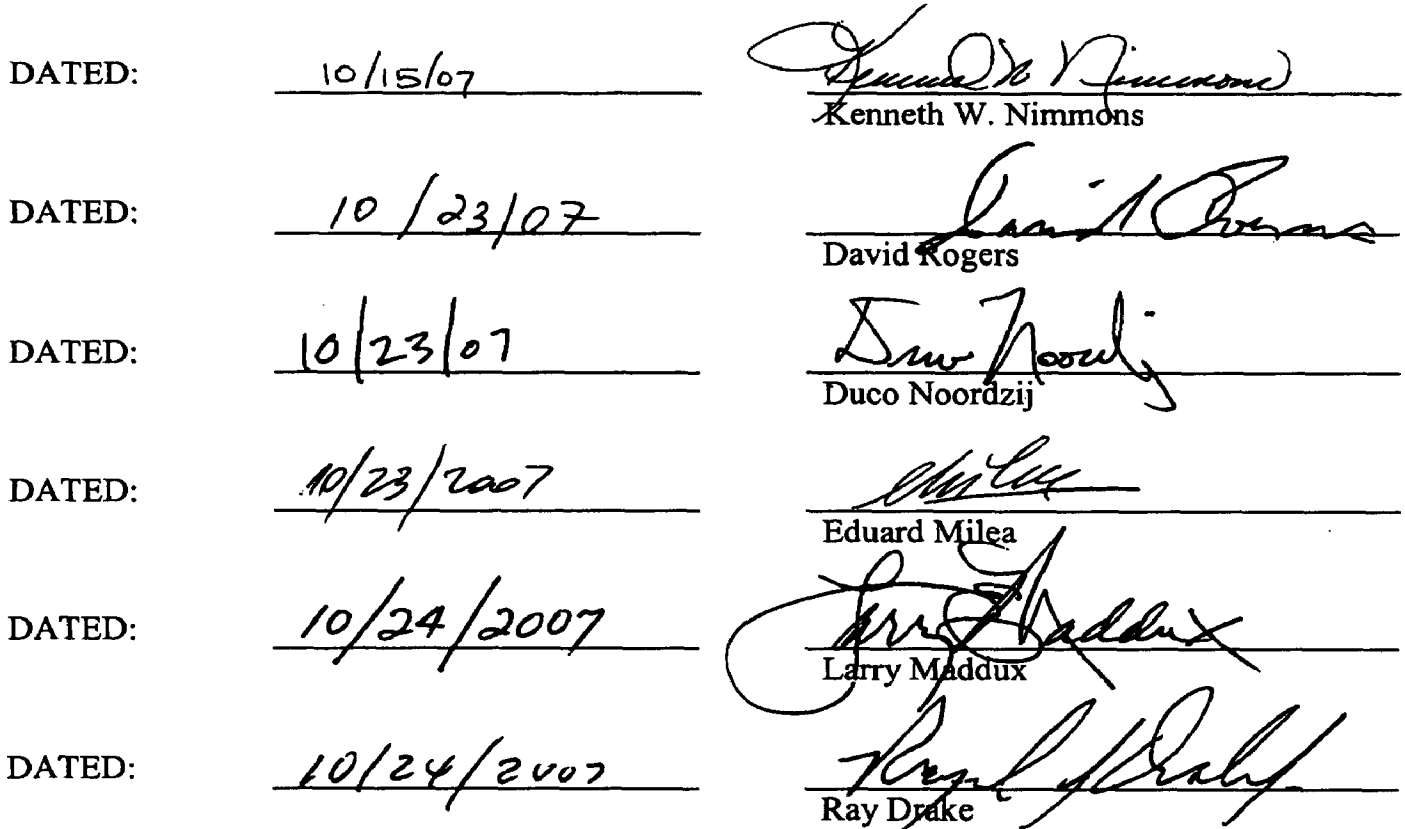 DATED: 10/15/07 Kenneth W. Nimmons
Kenneth W. Nimmons
DATED: 10/23/07
David Rogers
DATED: 10/23/07 Duco Noordzij
Duco Noordzij
DATED: 10/23/2007
Eduard Milea
DATED: 10/24/2007 Larry Maddux
Larry Maddux
DATED: 10/24/2007
Ray Drake